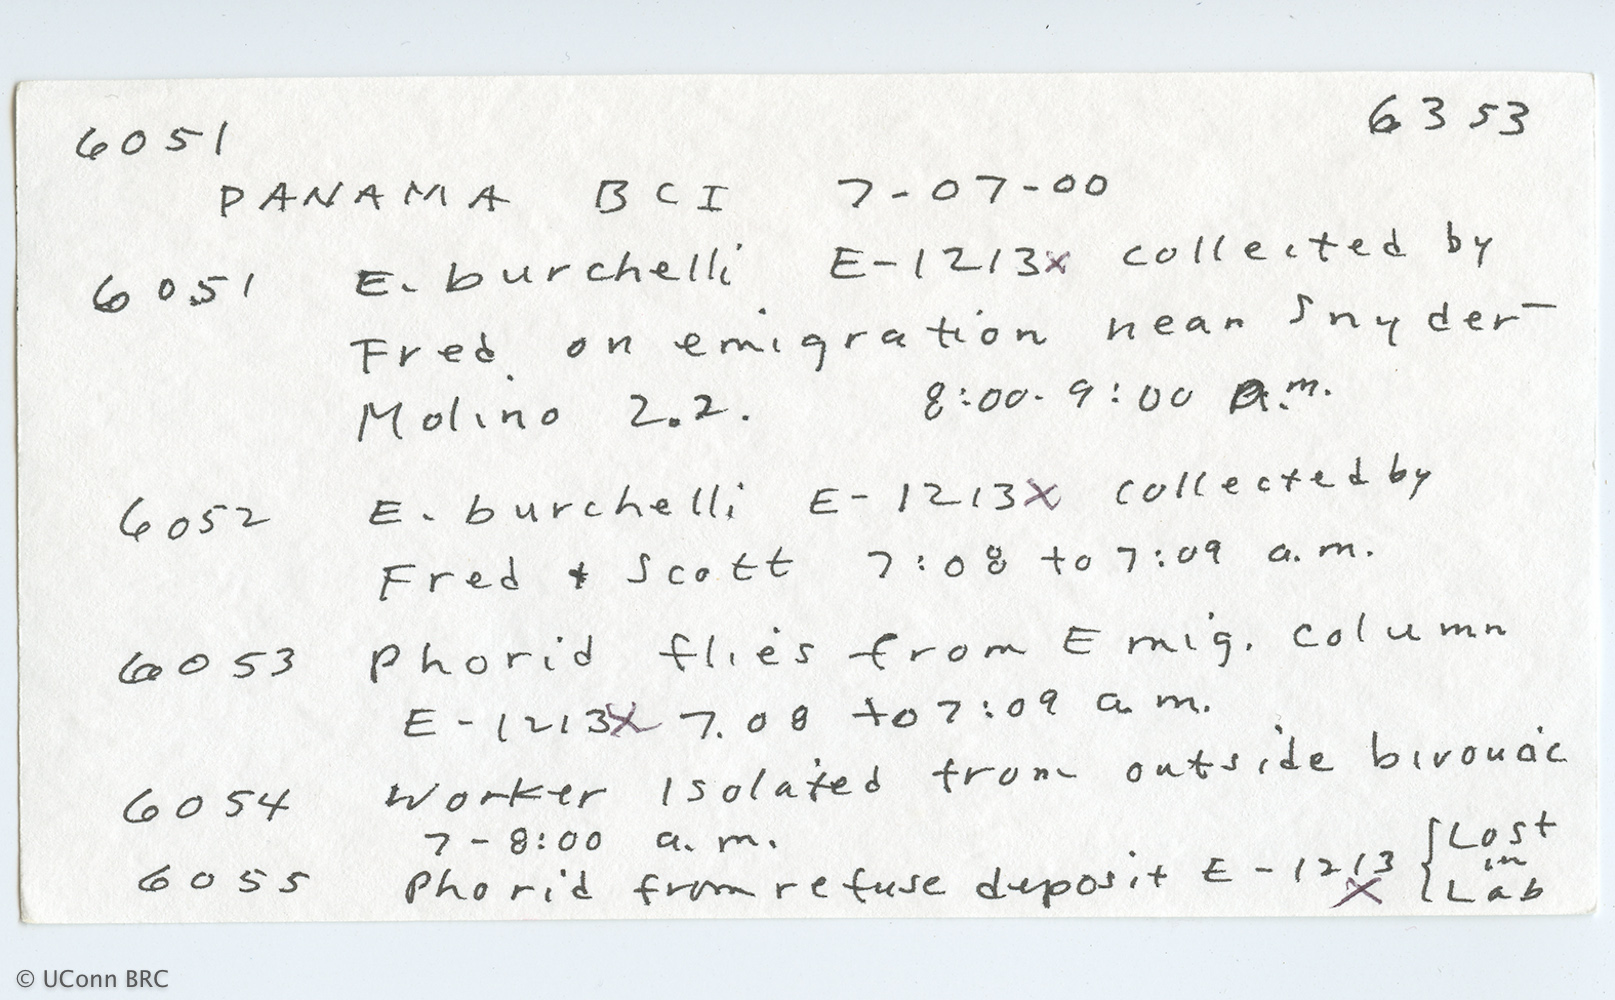 6051 6353
PANAMA BCI 7-07-00
6051 E. burchelli E-1213x collected by
Fred on emigration near Snyder-
Molino 2.2. 8:00-9:00 a.m.
6052 E. burchelli E-1213x collected by
Fred & Scott 7:08 to 7:09 a.m.
6053 Phorid flies from Emig. column
E-1213x 7.08 to 7:09 a.m.
6054 Worker Isolated from outside bivouac
7-8:00 a.m.
6055 Phorid from refuse deposit E-1213x { Lost in Lab
© UConn BRC